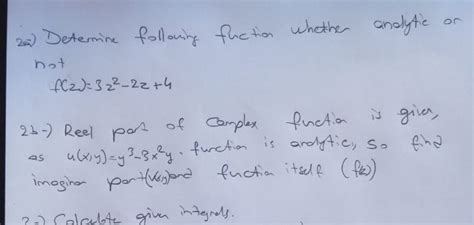 2a) Determine following fuction whether analytic or
not
f(z)=3z²-2z+4
2b-) Reel part of complex fuction is given,
as u(x,y)=y³-3x²y. function is analytic, so find
imaginar part(v(x,y)) and fuction itself (f(z))
2c) Calculate given integrals.